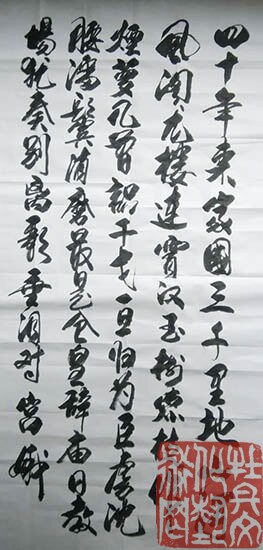 四十年来家國三千里地山河
凤阁龙樓連霄汉玉树琼枝作
煙萝几曾識干戈一旦归为臣虜沈
腰潘鬓消磨最是仓皇辞庙日教
坊犹奏别离歌垂泪对宫娥